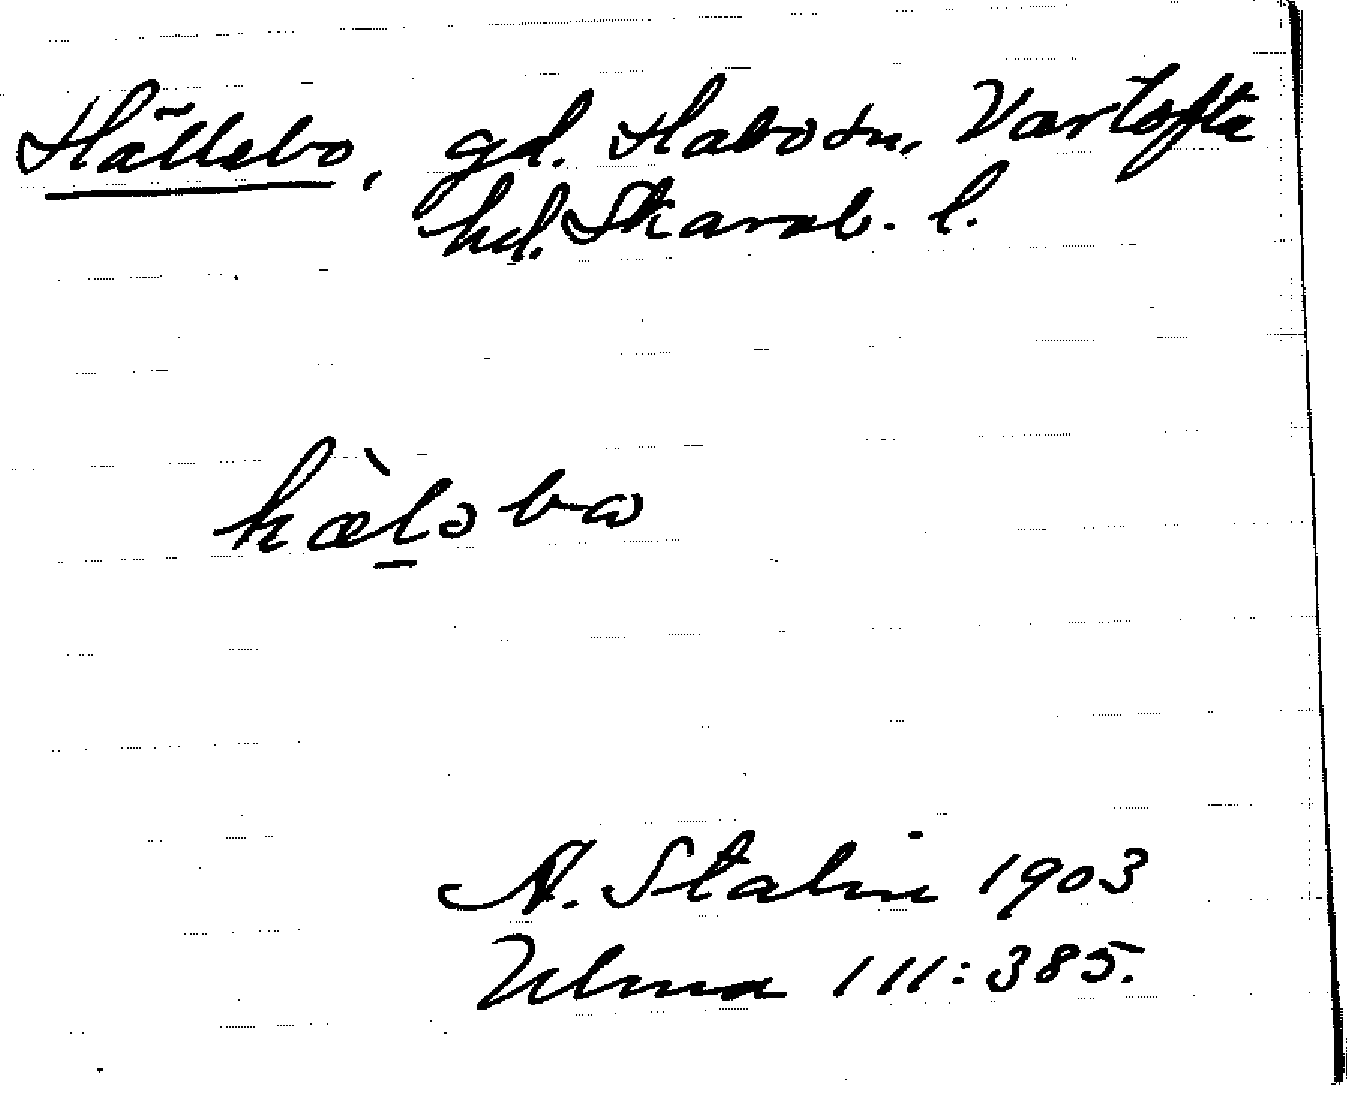 Hällebo, gd. Habo sn, Vartofta
hd. Skarab. l.
hæ̀ḻɔbɷ
A. Stalin 1903
Ulma 111:385.